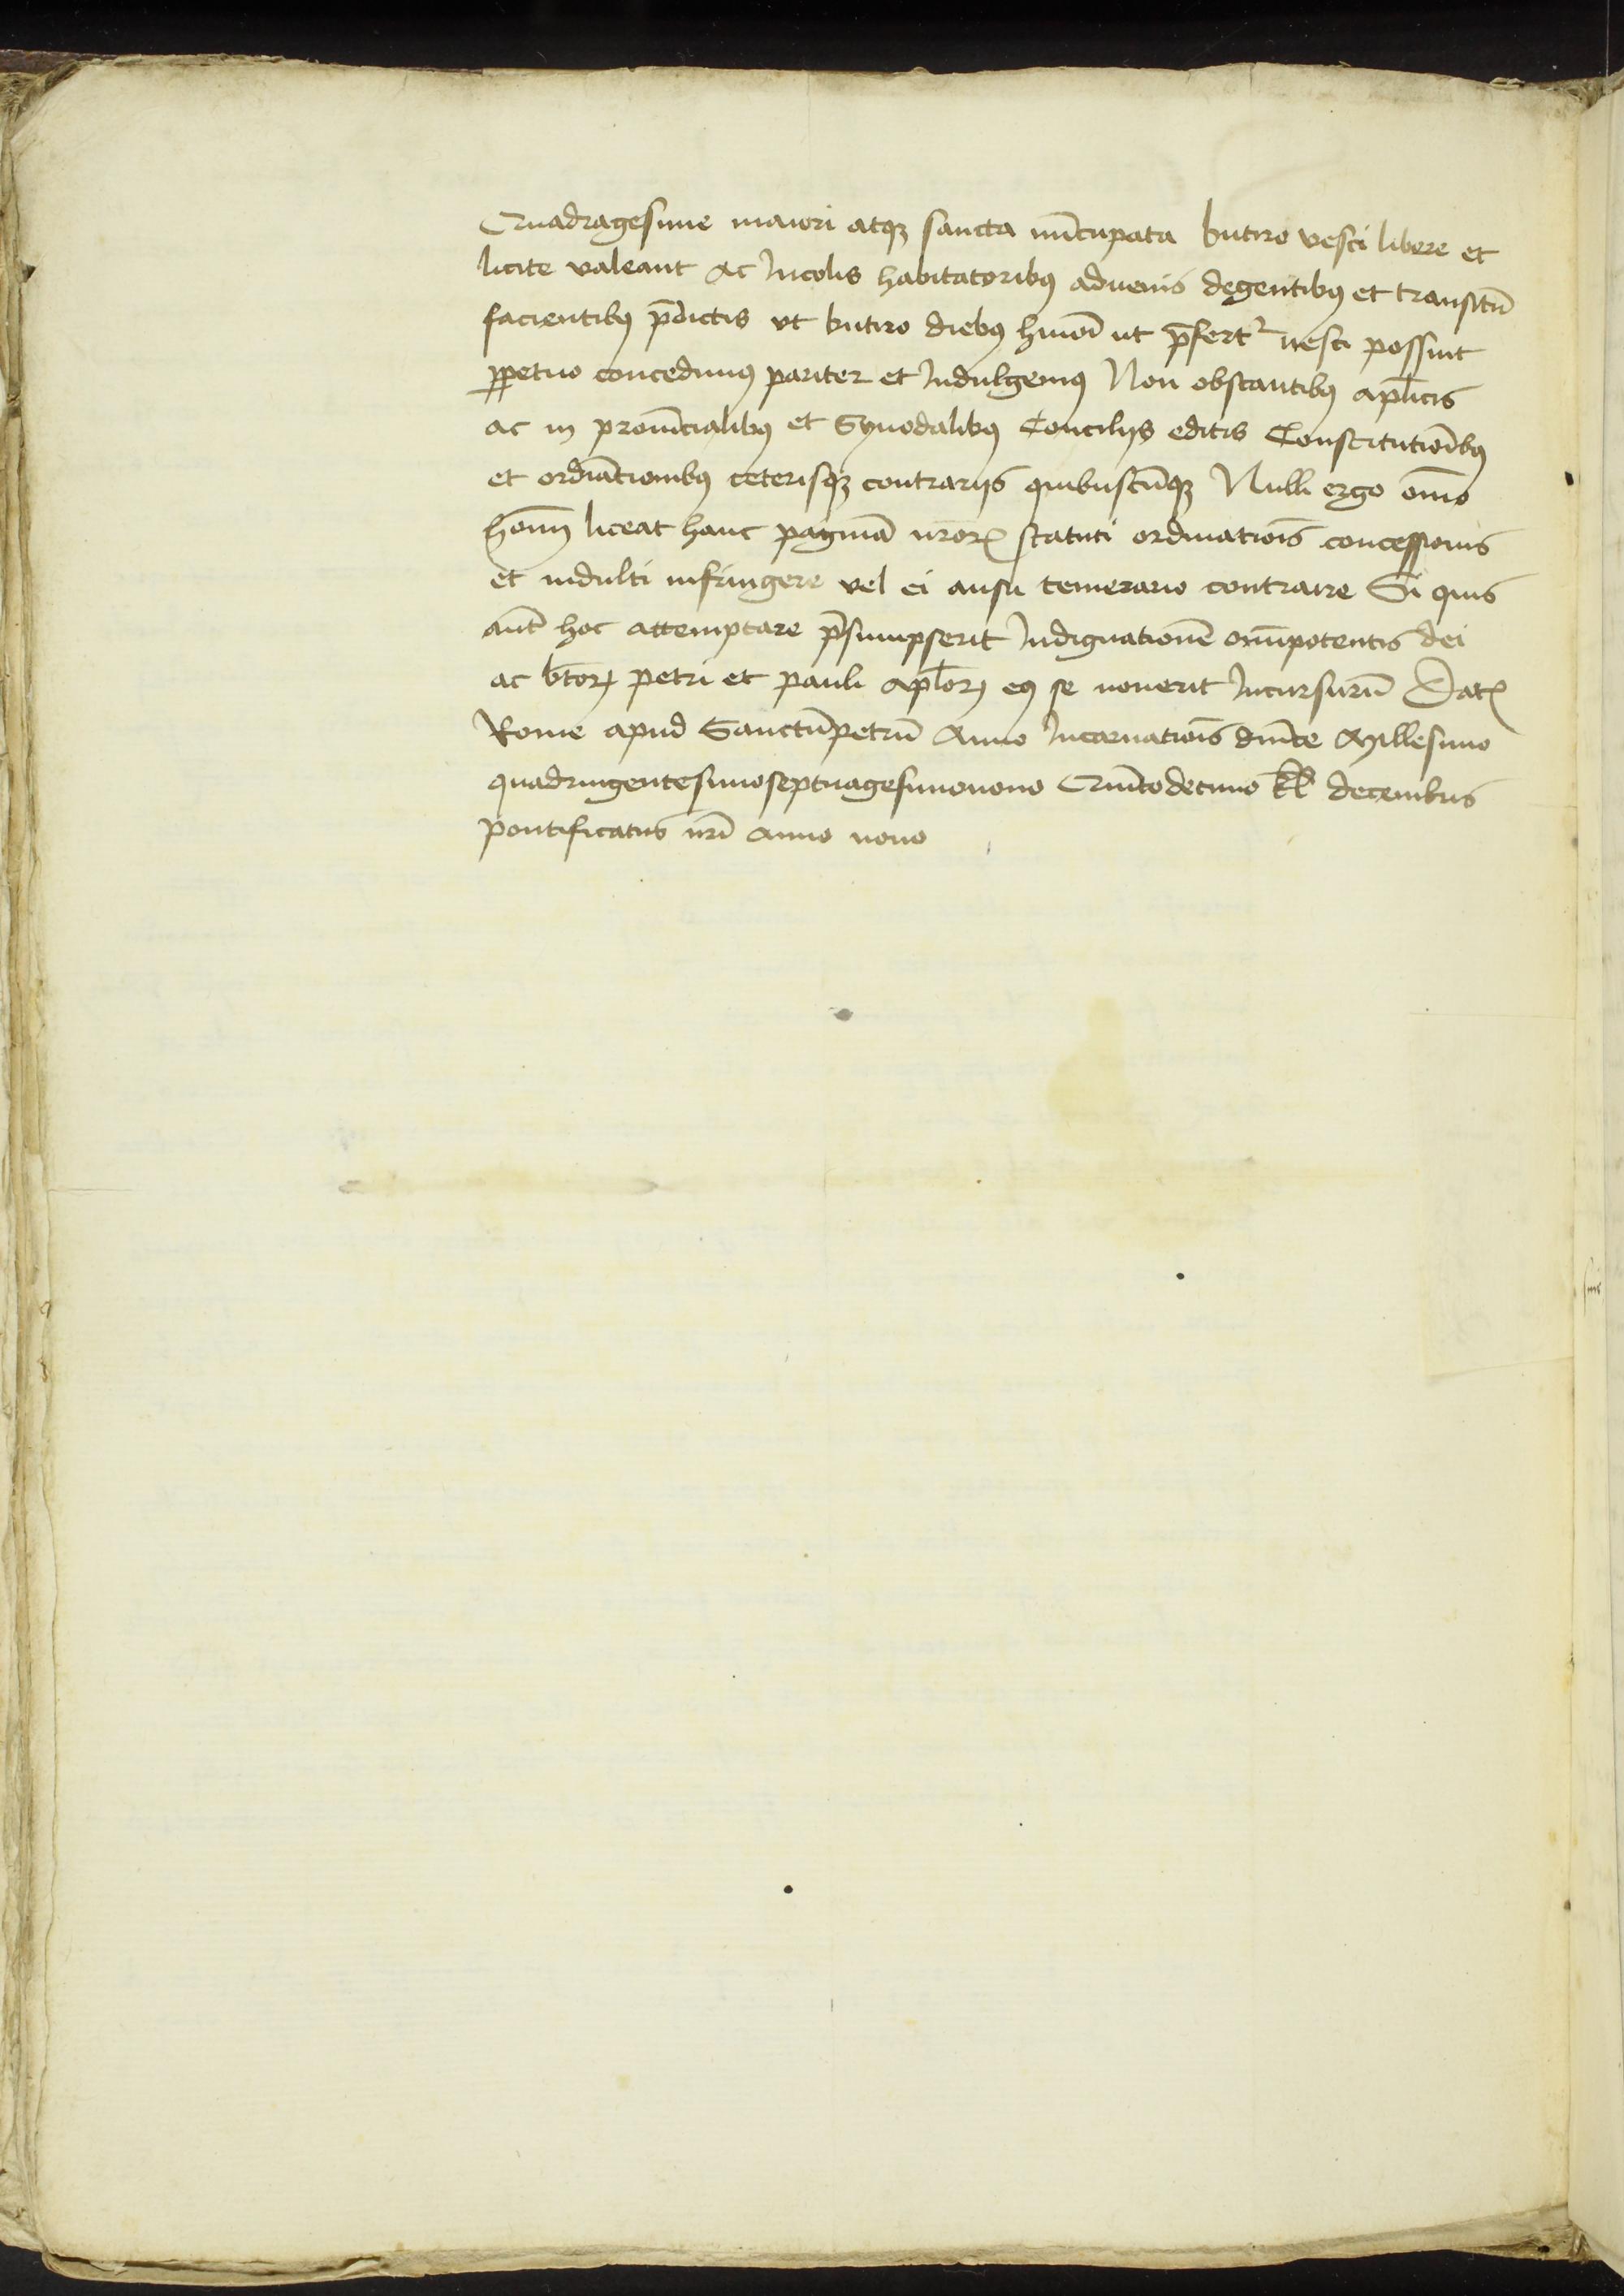 Quadragesime maiori atqꝫ sancta nūcupata butiro vesci libere et
licite valeant Ac Incolis habitatoribꝰ aduenis degentibꝰ et transitū
facientibꝰ p̄dictis vt butiro diebꝰ hmōi ut p̄fertᷣ uesci possint
ꝑpetuo concedimꝰ pariter et Indulgemꝰ Non obstantibꝰ apl̄icis
ac in prouīcialibꝰ et Synodalibꝰ Concilijs editis Constitutiōibꝰ
et ordīatiōnibꝰ ceterisqꝫ contrarijs quibuscūqꝫ Nulli ergo om̄o
hoīm liceat hanc paginā nr̄oꝝ statuti ordinatiōis concessionis
et indulti infringere vel ei ausu temerario contraire Si quis
aut̄ hoc attemptare p̄sumpserit Indignationē omīpotentis dei
ac bt̄oꝝ petri et pauli apl̄oꝝ eiꝰ se nouerit Incursurū Datꝭ
Rome apud Sanctūpetrū Anno Incarnatiōis dn̄ice Millesimo
quadringentesimoseptuagesimonono Quītodecimo kl̄ decembris
pontificatus nr̄i Anno nono